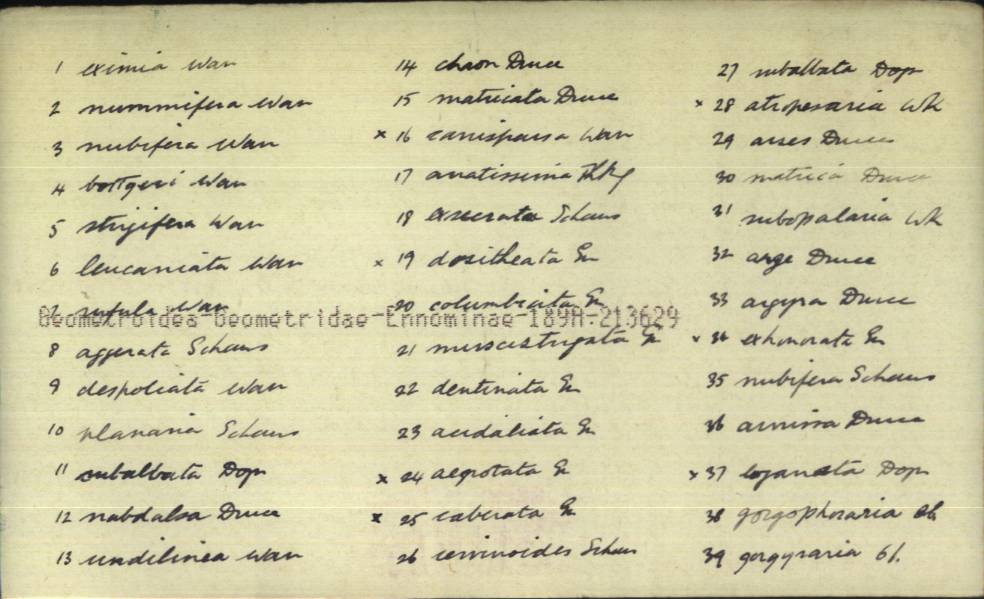 1 eximia War
2 nummifera War
3 nubifera War
4 bottgeri War
5 strigifera War
6 leucaniata War
7 rufula War
Geometroidea-Geometridae-Ennominae-189A-213629
8 aggerata Schaus
9 despoliata War
10 planaria Schaus
11 subalbata Dogn
12 nabdalsa Druce
13 undilinea War
14 chaon Druce
15 matricata Druce
x 16 canisparsa War
17
18 execrata Schaus
x 19 dositheata Gn
20 columbicita Gn
21 Gn
22 dentinata Gn
23 acidaliata Gn
x 24 aegrotata Gn
x 25 caberata Gn
26 cervinoides Schaus
27 subalbata Dogn
x 28 atropesaria Wk
29 arses Druce
30 matrica Druce
31 subopalaria Wk
32 arge Druce
33 argyra Druce
x 34 exhonorata Gn
35 nubifera Schaus
36 amissa Druce
x 37 loganata Dogn
38 gorgophoraria
39 gorgyraria